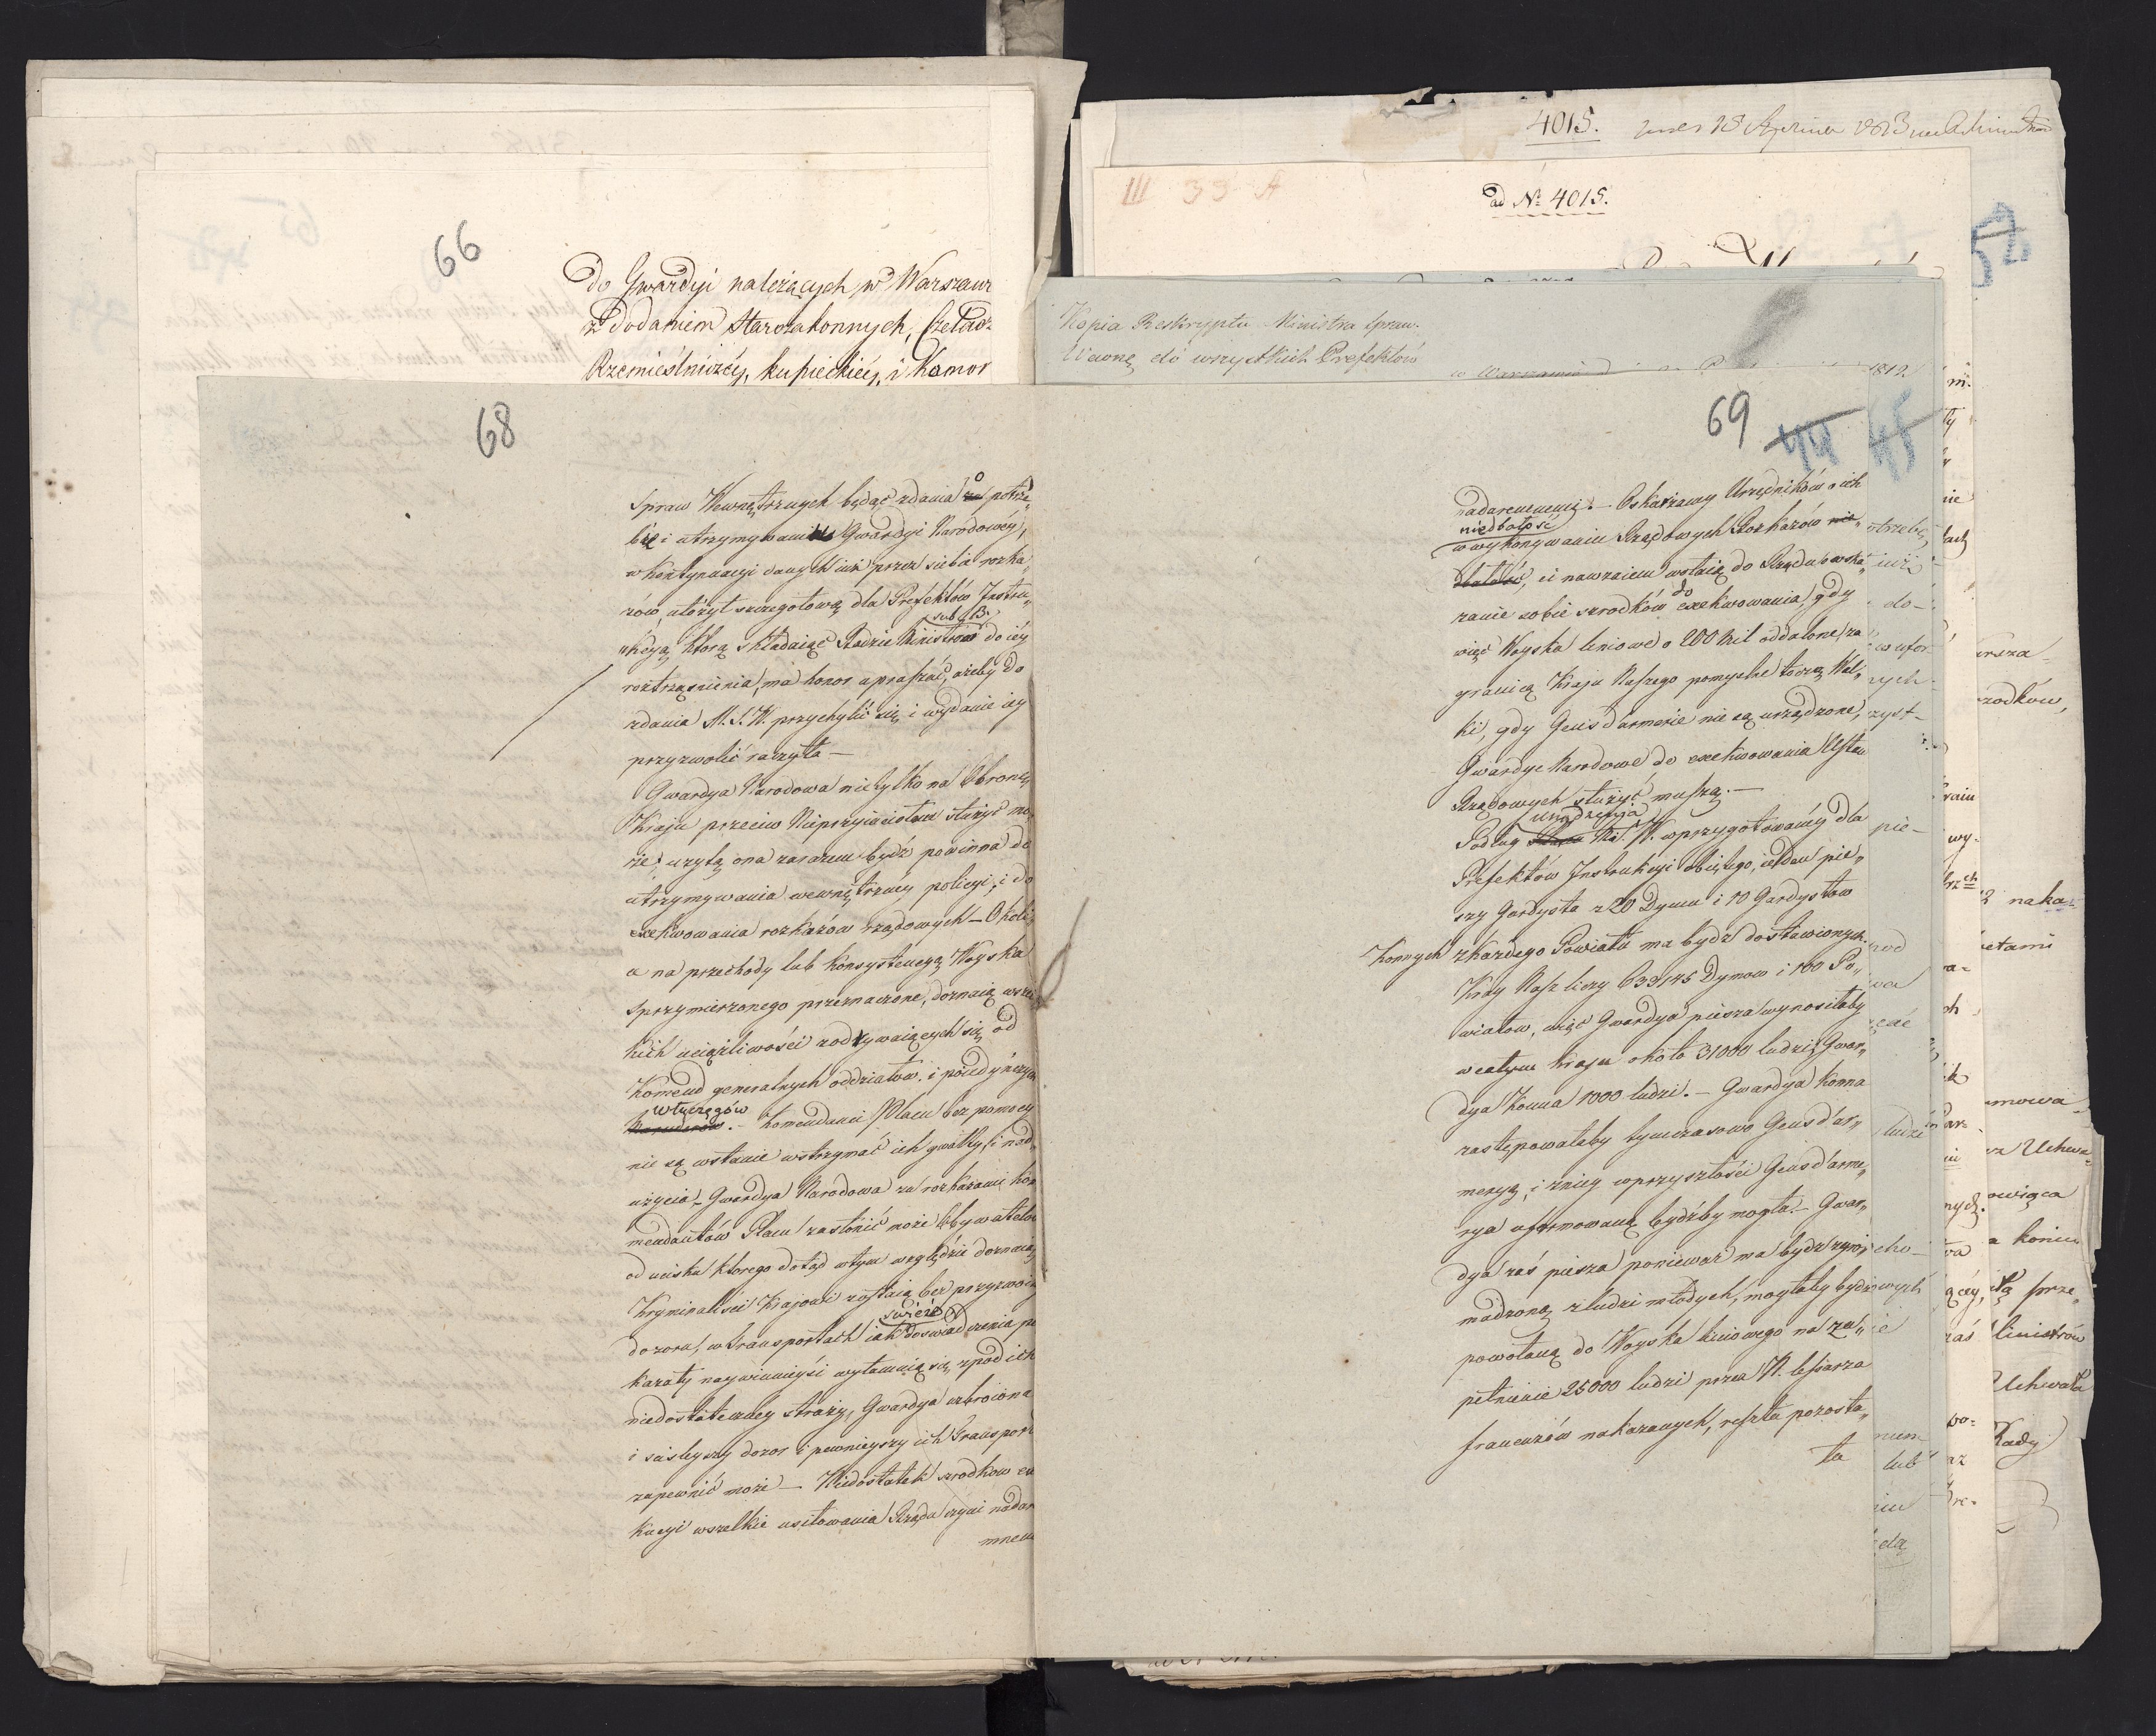 66
do Gwardyi należących, w Warszaw
z dodaniem Starozakonnych, Czeladz
Rzemieślniczéy, kupieckiéy, i Komor
68
Spraw Wewnętrznych będąc zdania o potrze„
bie i utrzymywaniu Gwardyi Narodowéy,
w kontynuacyi danych iuż przez siebie rozka„
zów, ułożył szczegołową dla Prefektów Instru„
sub B.
„kcyą, którą składaiąc Radzie Ministrów do iéy
roztrząśnienia, ma honor upraszać, ażeby do
zdania M. S. W. przychylić się i wydanie iey
przyzwolić raczyła —
Gwardya Narodowa nietylko na Obronę
Kraju przeciw Nieprzyiaciołom służyć mo„
że, użytą ona zarazem bydź powinna do
utrzymywania wewnętrznéy policyi, i do
exekwowania rozkazów rządowych — Okoli
a na przechody lub konsystencyą Woyska
sprzymierzonego przeznaczone, doznaią wszel
kich uciążliwości rodzywaiących się od
Komend generalnych oddziałów i poiedyńczych
włuczęgów
Maruderów. — Komendanci Placu bez pomocy
nie są wstanie wstrzymać ich gwałty, i nad„
użycia — Gwardya Narodowa za rozkazami kom
mendantów Placu zasłonić może Obywatelow
od ucisku ktorego dotąd wtym względzie doznaią
Kryminaliści Krajowi zostaią bez przyzwoit
świeże
dozoru, w transportach iak doświadczenia po
kazały naywinnieyśi wyłamuią się, zpod ich
niedostateczney straży, Gwardya uzbroiona
i ściśleyszy dozor i pewnieyszy ich transport
zapewnić może — Niedostatek srodkow exe
kucyi wszelkie usiłowania Rządu czyni nadar
mnemi
4015.
III 33 A
ad Nº 4015.
52
Kopia Reskryptu Ministra Spraw.
Wewnę do wszystkich Prefektów
w Warszawie
1812.
69
44 45
nadaremnemi. — Oskarżamy Urzędników o ich
niedbałość
w wykonywaniu Rządowych Rozkazów nie„
dbałość, ci nawzaiem wołaią do Rządu o wska„
do
zanie sobie srodków exekwowania, gdy
więc Woyska liniowe o 200 Mil oddalone, za
granicą Kraju Naszego pomyslne toczą Wal„
ki, gdy Gens d'armerie nie są urządzone,
Gwardye Narodowe do exekwowania Ustaw
Rządowych służyć muszą. —
urządzenia
Podług M. S. W. w przygotowanéy dla
Prefektów Instrukcyi obiętego, ieden pie„
szy Gardysta z 20 Dymu i 10 Gardystów
Konnych z każdego Powiatu ma bydź dostawionych.
Kray Nasz liczy 633,145 Dymow i 100 Po„
wiatow, więc Gwardya piesza wynosiłaby
w całym kraju około 31000 ludzi, Gwar„
dya Konna 1000 ludzi. — Gwardya konna
zastępowałaby tymczasowo Gens d'ar„
meryą, i zniey w przyszłości Gens d'arme„
rya uformowaną bydźby mogła. — Gwar„
dya zaś piesza ponieważ ma bydź zgro„
madzoną z ludzi młodych, mogłaby bydź
powołaną do Woyska liniowego na zu„
pełnienie 25000 ludzi przez N. Cesarza
francuzów nakazanych, reszta pozosta„
ła